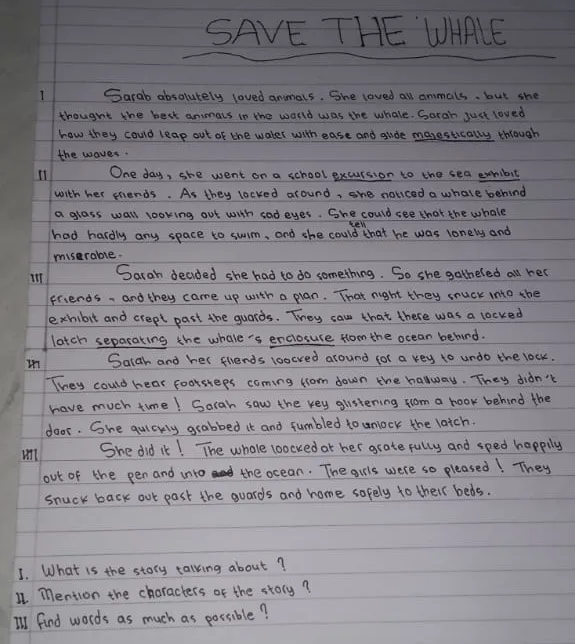 SAVE THE WHALE
I Sarah absolutely loved animals. She loved all animals, but she
thought the best animals in the world was the whale. Sarah just loved
how they could leap out of the water with ease and glide majestically through
the waves.
II One day, she went on a school excursion to the sea exhibit
with her friends. As they locked around, she noticed a whale behind
a glass wall looking out with sad eyes. She could see that the whale
had hardly any space to swim, and she could tell that he was lonely and
miserable.
III Sarah decided she had to do something. So she gathered all her
friends, and they came up with a plan. That night they snuck into the
exhibit and crept past the guards. They saw that there was a locked
latch separating the whale's enclosure from the ocean behind.
Sarah and her friends loocked around for a key to undo the lock.
They could hear footsteps coming from down the hallway. They didn't
have much time! Sarah saw the key glistening from a hook behind the
door. She quickly grabbed it and fumbled to unlock the latch.
She did it! The whale loocked at her gratefully and sped happily
out of the pen and into the ocean. The girls were so pleased! They
snuck back out past the guards and home safely to their beds.
I. What is the story talking about?
II. Mention the characters of the story?
III Find words as much as possible?